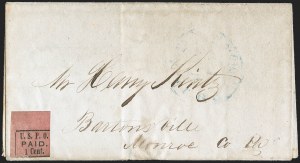 Mr Henry Kintz
Bartonsville
Monroe Co
U.S.P.O.
PAID.
1 Cent.